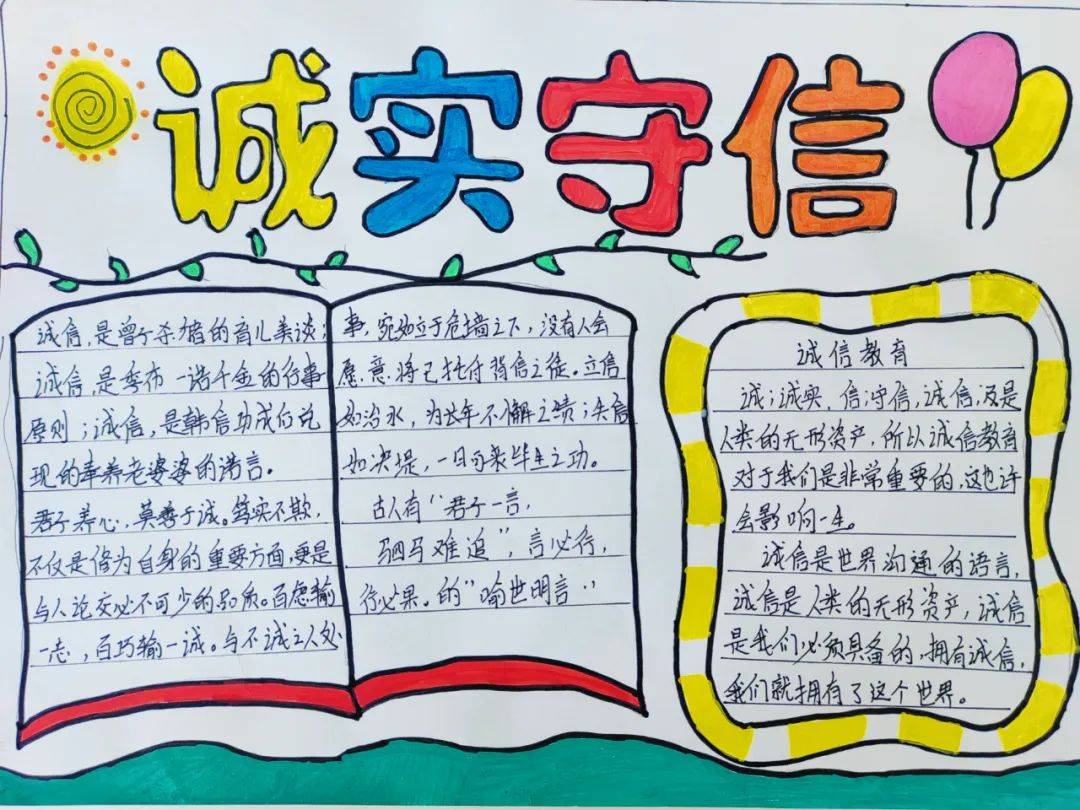 诚实守信
诚信,是曾子杀猪的育儿美谈;
诚信,是季布一诺千金的行事
原则;诚信,是韩信功成后兑
现的奉养老婆婆的诺言。
君子养心,莫善于诚。笃实不欺,
不仅是修为自身的重要方面,更是
与人论交必不可少的品质。百虑输
一志,百巧输一诚。与不诚之人处
事,宛如立于危墙之下,没有人会
愿意将己托付背信之徒。立信
如治水,为长年不懈之绩;失信
如决堤,一日可丧毕生之功。
古人有“君子一言,
驷马难追”,言必行,
行必果。的“喻世明言”
诚信教育
诚;诚实,信;守信,诚信,及是
人类的无形资产,所以诚信教育
对于我们是非常重要的,这也许
会影响一生。
诚信是世界沟通的语言,
诚信是人类的无形资产,诚信
是我们必须具备的,拥有诚信,
我们就拥有了这个世界。